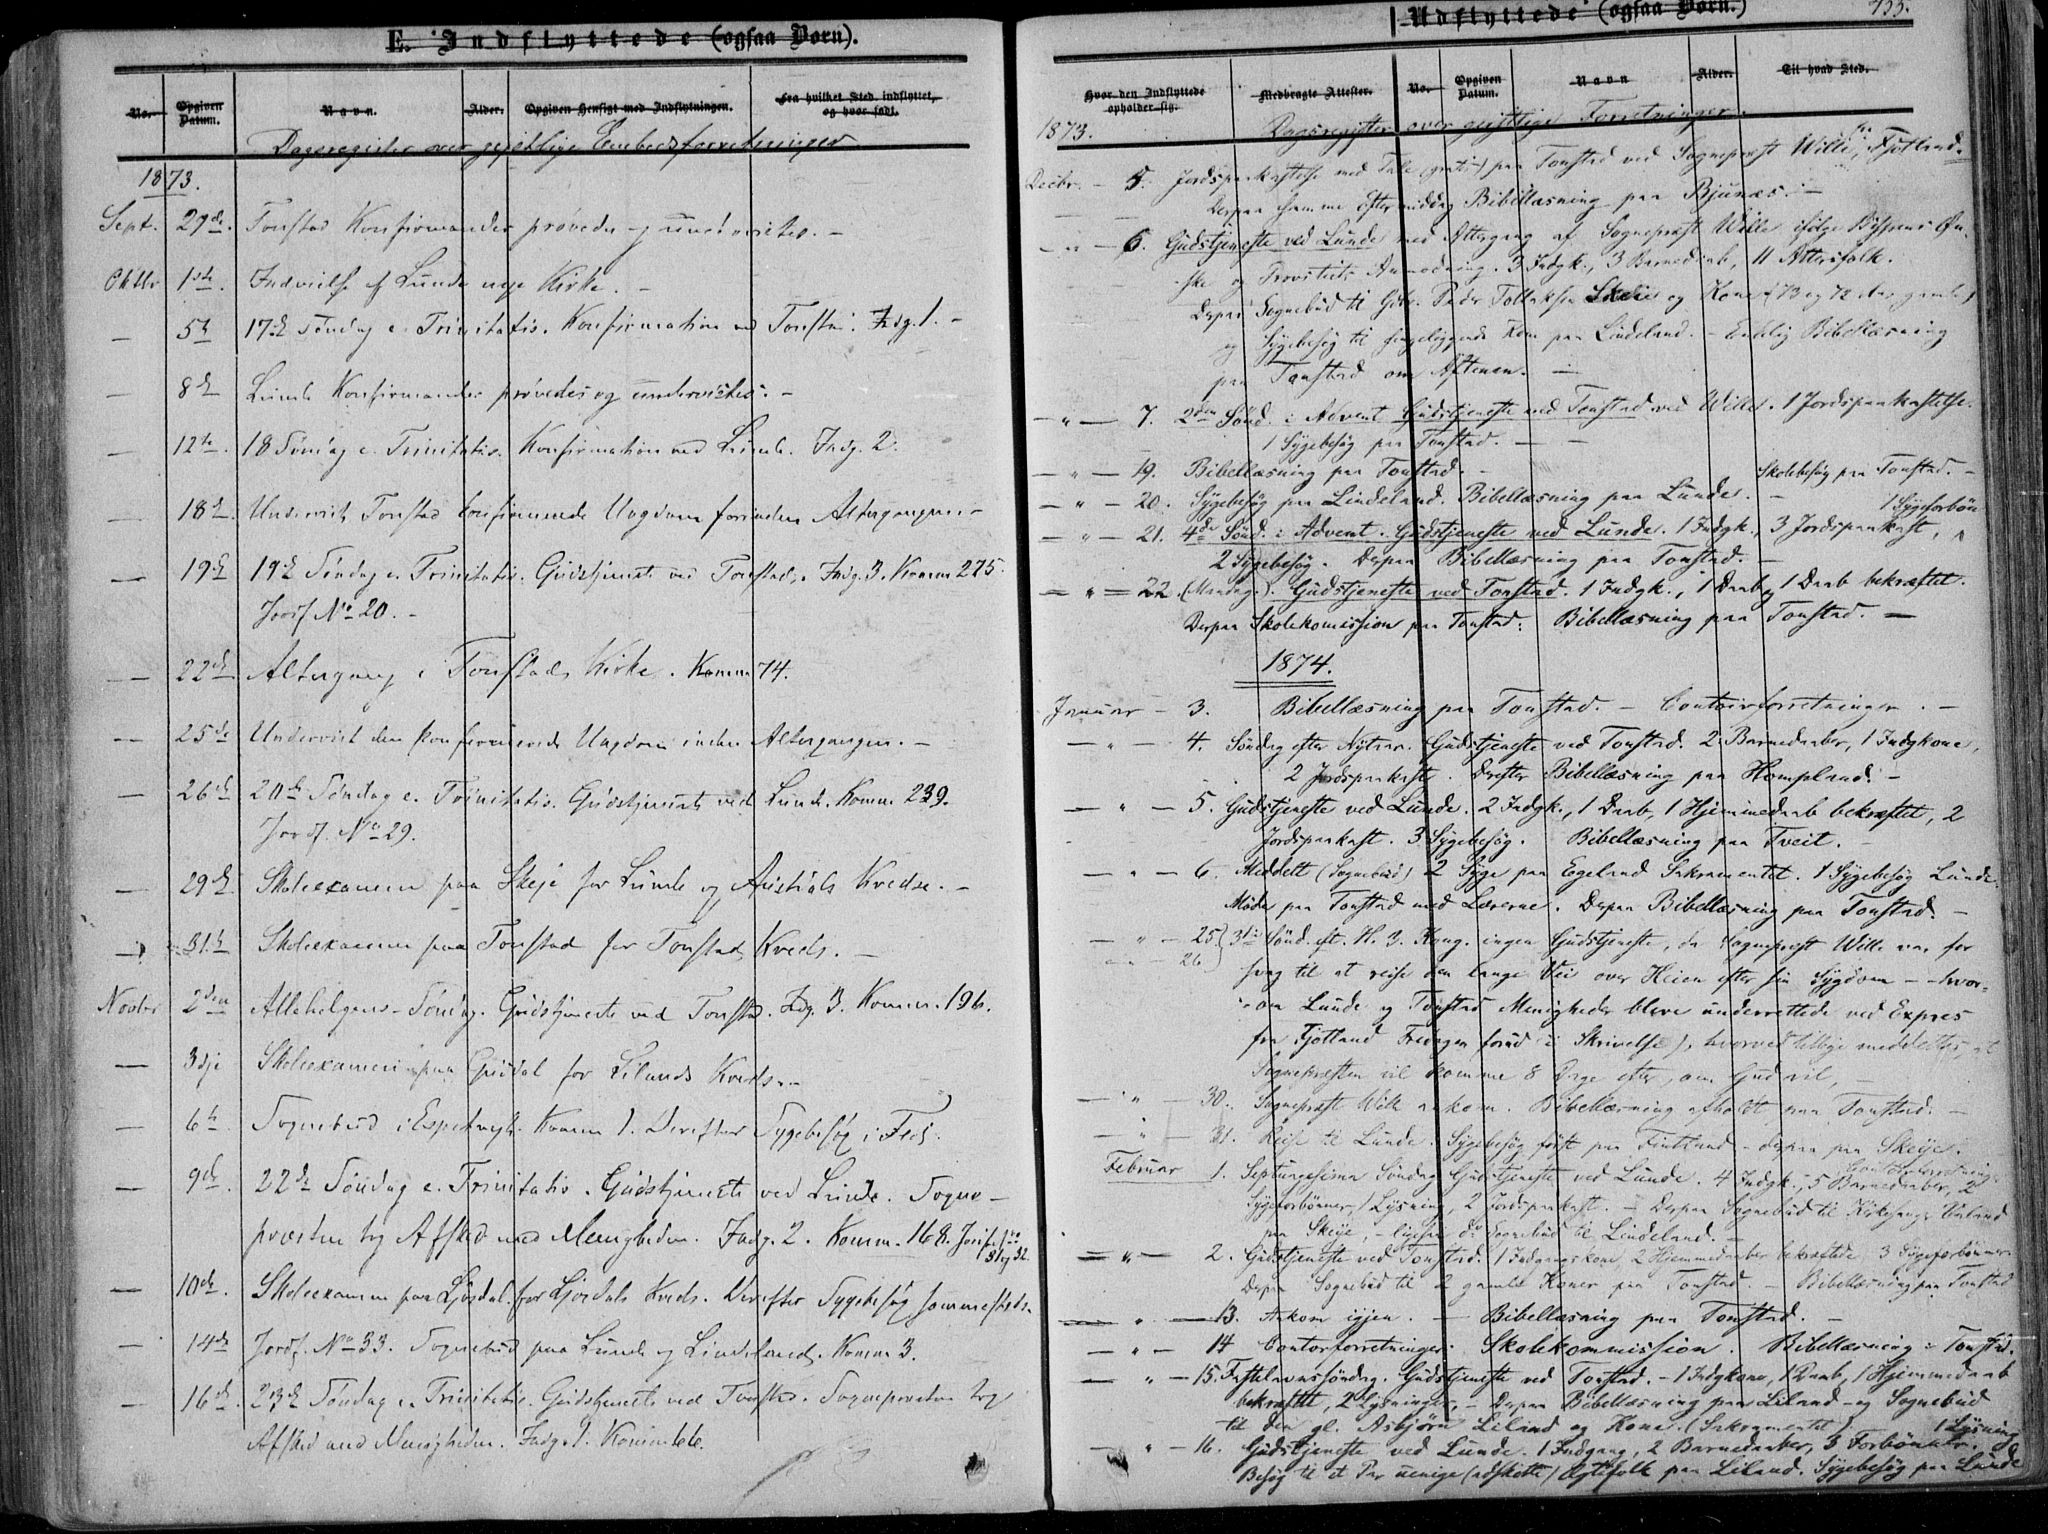 E. Indflyttede (ogsaa Børn).
No. Opgiven Datum. Navn. Alder. Opgiven Hensigt med Indflytningen. Fra hvilket Sted indflyttet, og hvor født.
Dagsregister over gejstlige Embedsforretninger
1873.
Sept. 29de. Tonstad Konfirmander prøvedes og undervistes. –
Oktbr 1ste. Indvielse af Lunde nye Kirke. –
— 5te 17de Søndag e. Trinitatis. Konfirmation ved Tonstad. Indg. 1. –
— 8de Lunde Konfirmander prøvedes og undervistes. –
— 12te. 18 Søndag e. Trinitatis. Konfirmation ved Lunde. Indg. 2.
— 18de. Underviste Tonstad konfirmerede Ungdom forinden Altergangen. –
— 19de 19de Søndag e. Trinitatis. Gudstjeneste ved Tonstad. Indg. 3. Komm. 225.
Jordf. No 20. –
— 22de Altergang i Tonstads Kirke. Komm. 74.
— 25de Undervist den konfirmerede Ungdom inden Altergangen. –
— 26de 20de Søndag e. Trinitatis. Gudstjeneste ved Lunde. Komm. 239.
Jordf. No 29.
— 29de Skoleexamen paa Skeje for Lunde og Austads Kredse. –
— 31te Skoleexamen paa Tonstad for Tonstad Kreds. –
Novbr 2den Allehelgens-Søndag. Gudstjeneste ved Tonstad. Indg. 3. Komm. 196.
— 3dje Skoleexamen paa Gusdal for Lilands Kreds. –
— 6te Sognebud i Espetvejt. Komm 1. Derefter Sygebesøg i
— 9de. 22de Søndag e. Trinitatis. Gudstjeneste ved Lunde. Sogne-
præsten tog Afsked med Menigheden. Indg. 2. Komm. 168. Jordf. No 31 og 32.
— 10de. Skoleexamen paa Gjosdal for Gjosdals Kreds. Derefter Sygebesøg sammesteds.
— 14de Jordf. No 33. Sognebud paa Lunde og Lindeland. Komm 3.
— 16de. 23de Søndag e. Trinitatis. Gudstjeneste ved Tonstad. Sognepræsten tog
Afsked med Menigheden. Indg. 1. Komm. 66.
Udflyttede (ogsaa Børn.)
Hvor den Indflyttede opholder sig. Medbragte Attester. No. Opgiven Datum. Navn Alder. Til hvad Sted.
1873. Dagsregister over gejstlige Forretninger.
Decbr. – 5. Jordspaakastelse med Tale (gratis) paa Tonstad ved Sognepræst Wille fra Fjotland.
Derpaa samme Eftermiddag Bibellæsning paa Bjunæs. –
— " — 6. Gudstjeneste ved Lunde med Altergang af Sognepræst Wille ifølge Bispens Øn-
ske og Provstiets Anmodning. 3 Indgk., 3 Barnedaab, 11 Altersfolk.
Derpaa Sognebud til Gbr. Peder Tollaksen Skeie og Kone (73 og 72 Aar gamle)
og Sygebesøg til sengeliggende Kone paa Lindeland. – Endelig Bibellæsning
paa Tonstad om Aftenen. –
— " — 7. 2den Sønd. i Advent Gudstjeneste ved Tonstad ved Wille. 1 Jordspaakastelse.
1 Sygebesøg paa Tonstad. –
— " — 19. Bibellæsning paa Tonstad. – Skolebesøg paa Tonstad. –
— " — 20. Sygebesøg paa Lindeland. Bibellæsning paa Lunde. – 1 Sygeforbøn
— " — 21. 4de Sønd. i Advent. Gudstjeneste ved Lunde. 1 Indgk., 3 Jordspaakast,
2 Sygebesøg. Derpaa Bibellæsning paa Tonstad. –
— " — 22. (Mandag). Gudstjeneste ved Tonstad. 1 Indgk., 1 Daab, 1 Daab bekræftet.
Derpaa Skolekomission paa Tonstad. Bibellæsning paa Tonstad. –
1874.
Januar – 3. Bibellæsning paa Tonstad. – Contoirforretninger. –
— " — 4. Søndag efter Nytaar. Gudstjeneste ved Tonstad. 2 Barnedaaber, 1 Indgkone,
2 Jordspaakast. Derefter Bibellæsning paa Hompland. –
— " — 5. Gudstjeneste ved Lunde. 2 Indgk., 1 Daab, 1 Hjemmedaab bekræftet, 2
Jordspaakast. 3 Sygebesøg. Bibellæsning paa Tveit. –
— " — 6. Meddelt (Sognebud) 2 Syge paa Egeland Sakramentet. 1 Sygebesøg Lunde.
Møde paa Tonstad med Lærerne. Derpaa Bibellæsning paa Tonstad. –
— " — 25 } 3die Sønd. eft. H. 3. Kong. ingen Gudstjeneste, da Sognepræst Wille var for
— " — 26 } svag til at reise den lange Vei over Heien efter sin Sygdom – hvor-
om Lunde og Tonstad Menigheder bleve underrettede ved Expres
fra Fjotland Fredagen forud i Skrivelse), hvorved tillige meddeltes, at
Sognepræsten vil komme 8 Dage efter, om Gud vil, –
— " — 30. Sognepræst Wille ankom. Bibellæsning afholdt paa Tonstad. –
— " — 31. Reise til Lunde. Sygebesøg først paa Fintland – derpaa paa Skeije.
Februar 1. Septuagesima Søndag Gudstjeneste ved Lunde. 4 Indgk., 5 Barnedaaber, 2
Sygeforbønner, 1 Lysning, 2 Jordspaakast. – Derpaa Sognebud til Kirkesanger
paa Skeije, – ligesaa do Sognebud til Lindeland. –
— " — 2. Gudstjeneste ved Tonstad. 1 Indgangskone, 2 Hjemmedaaber bekræftede, 3 Sygeforbønner.
Derpaa Sognebud til 2 gamle Koner paa Tonstad – Bibellæsning paa Tonstad
— " — 13. Ankom igjen. – Bibellæsning paa Tonstad. –
— " — 14 Contorforretninger. Skolekommission. Bibellæsning i Tonstad.
— " — 15. Fastelavnssøndag. Gudstjeneste ved Tonstad. – 1 Indgkone, 1 Daab, 1 Hjemmedaab
bekræftet, 2 Lysninger, – Derpaa Bibellæsning paa Liland – og Sognebud
til den gl. Asbjørn Liland og Kone. (Sakramentet) 1 Lysning
— " — 16. Gudstjeneste ved Lunde. 1 Indgang, 2 Barnedaaber, 3 Forbønner.
Besøg til et Par uenige (adskilte) Ægtefolk paa Liland. Sygebesøg paa Lunde